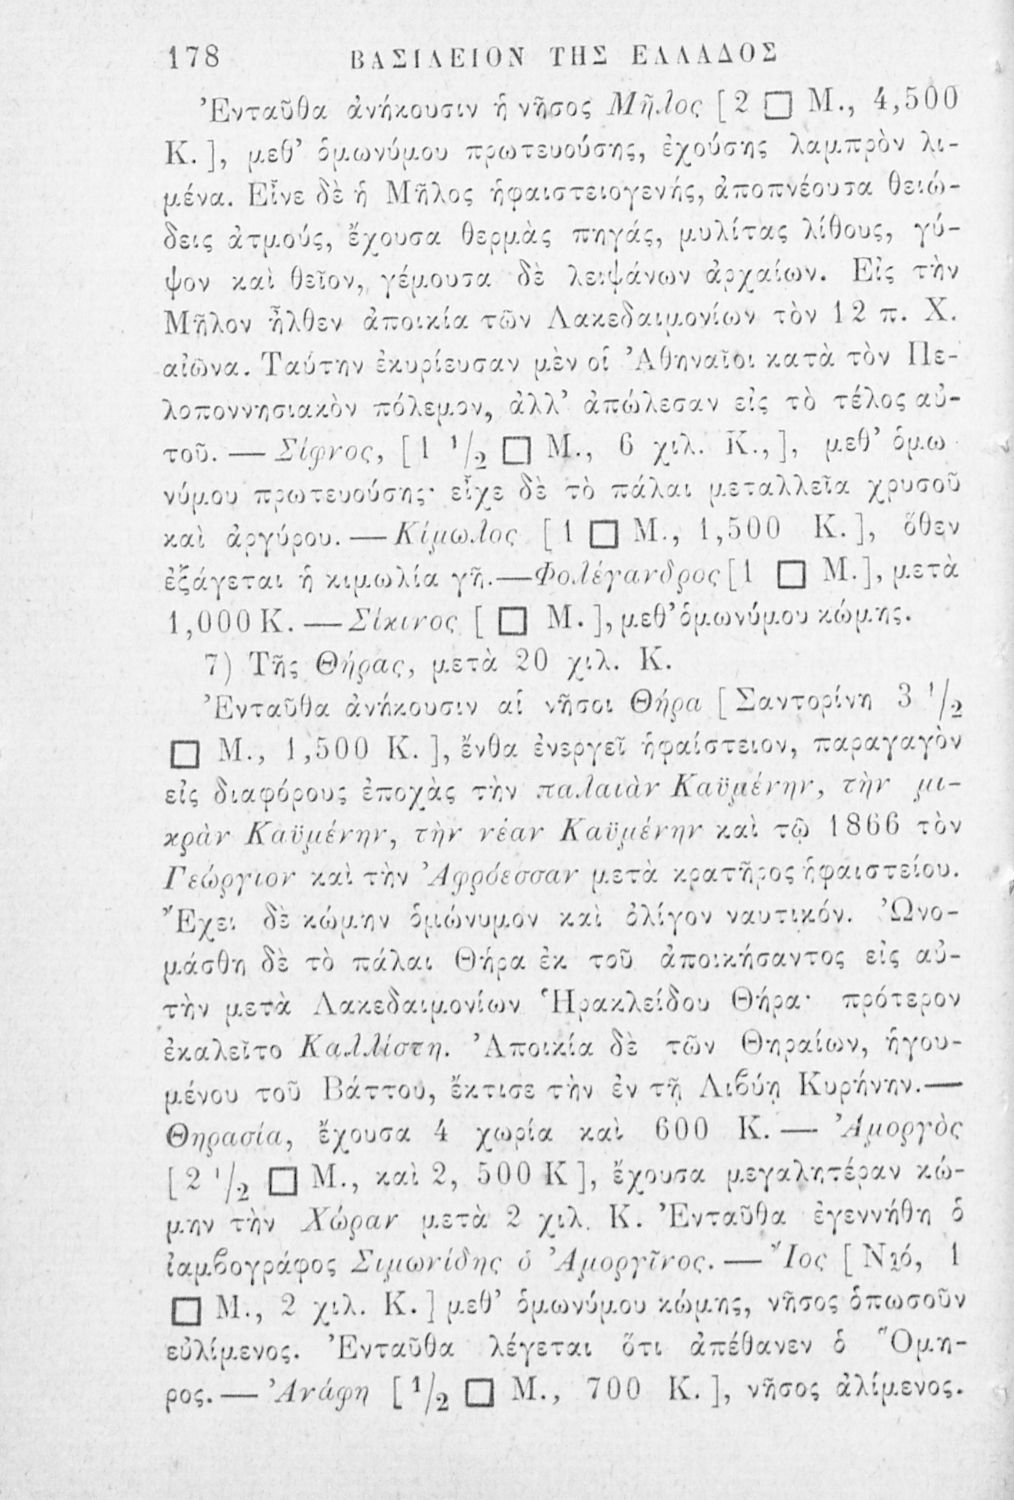 178 ΒΑΣΙΛΕΙΟΝ ΤΗΣ ΕΛΛΑΔΟΣ
Ἐνταῦθα ἀνήκουσιν ἡ νῆσος Μῆλος [2 □ Μ., 4,500
Κ.], μεθ’ ὁμωνύμου πρωτευούσης, ἐχούσης λαμπρὸν λι-
μένα. Εἶνε δὲ ἡ Μῆλος ἡφαιστειογενής, ἀποπνέουσα θειώ-
δεις ἀτμούς, ἔχουσα θερμὰς πηγάς, μυλίτας λίθους, γύ-
ψον καὶ θεῖον, γέμουσα δὲ λειψάνων ἀρχαίων. Εἰς τὴν
Μῆλον ἦλθεν ἀποικία τῶν Λακεδαιμονίων τὸν 12 π. Χ.
αἰῶνα. Ταύτην ἐκυρίευσαν μὲν οἱ Ἀθηναῖοι κατὰ τὸν Πε-
λοποννησιακὸν πόλεμον, ἀλλ’ ἀπώλεσαν εἰς τὸ τέλος αὐ-
τοῦ. — Σίφνος, [1 1/2 □ Μ., 6 χιλ. Κ.,], μεθ’ ὁμω
νύμου πρωτευούσης· εἶχε δὲ τὸ πάλαι μεταλλεῖα χρυσοῦ
καὶ ἀργύρου. — Κίμωλος [1 □ Μ., 1,500 Κ.], ὅθεν
ἐξάγεται ἡ κιμωλία γῆ.—Φολέγανδρος [1 □ Μ.], μετὰ
1,000 Κ. — Σίκινος [ □ Μ.], μεθ’ ὁμωνύμου κώμης.
7) Τῆς Θήρας, μετὰ 20 χιλ. Κ.
Ἐνταῦθα ἀνήκουσιν αἱ νῆσοι Θήρα [Σαντορίνη 3 1/2
□ Μ., 1,500 Κ.], ἔνθα ἐνεργεῖ ἡφαίστειον, παραγαγὸν
εἰς διαφόρους ἐποχὰς τὴν παλαιὰν Καϋμένην, τὴν μι-
κρὰν Καϋμένην, τὴν νέαν Καϋμένην καὶ τῷ 1866 τὸν
Γεώργιον καὶ τὴν Ἀφρόεσσαν μετὰ κρατῆρος ἡφαιστείου.
Ἔχει δὲ κώμην ὁμώνυμον καὶ ὀλίγον ναυτικόν. Ὠνο-
μάσθη δὲ τὸ πάλαι Θήρα ἐκ τοῦ ἀποικήσαντος εἰς αὐ-
τὴν μετὰ Λακεδαιμονίων Ἡρακλείδου Θήρα· πρότερον
ἐκαλεῖτο Καλλίστη. Ἀποικία δὲ τῶν Θηραίων, ἡγου-
μένου τοῦ Βάττου, ἔκτισε τὴν ἐν τῇ Λιϐύῃ Κυρήνην.—
Θηρασία, ἔχουσα 4 χωρία καὶ 600 Κ. — Ἀμοργὸς
[2 1/2 □ Μ., καὶ 2, 500 Κ], ἔχουσα μεγαλητέραν κώ-
μην τὴν Χώραν μετὰ 2 χιλ. Κ. Ἐνταῦθα ἐγεννήθη ὁ
ἰαμϐογράφος Σιμωνίδης ὁ Ἀμοργῖνος. — Ἴος [Νιό, 1
□ Μ., 2 χιλ. Κ.] μεθ’ ὁμωνύμου κώμης, νῆσος ὁπωσοῦν
εὐλίμενος. Ἐνταῦθα λέγεται ὅτι ἀπέθανεν ὁ Ὅμη-
ρος. — Ἀνάφη [1/2 □ Μ., 700 Κ.], νῆσος ἀλίμενος.